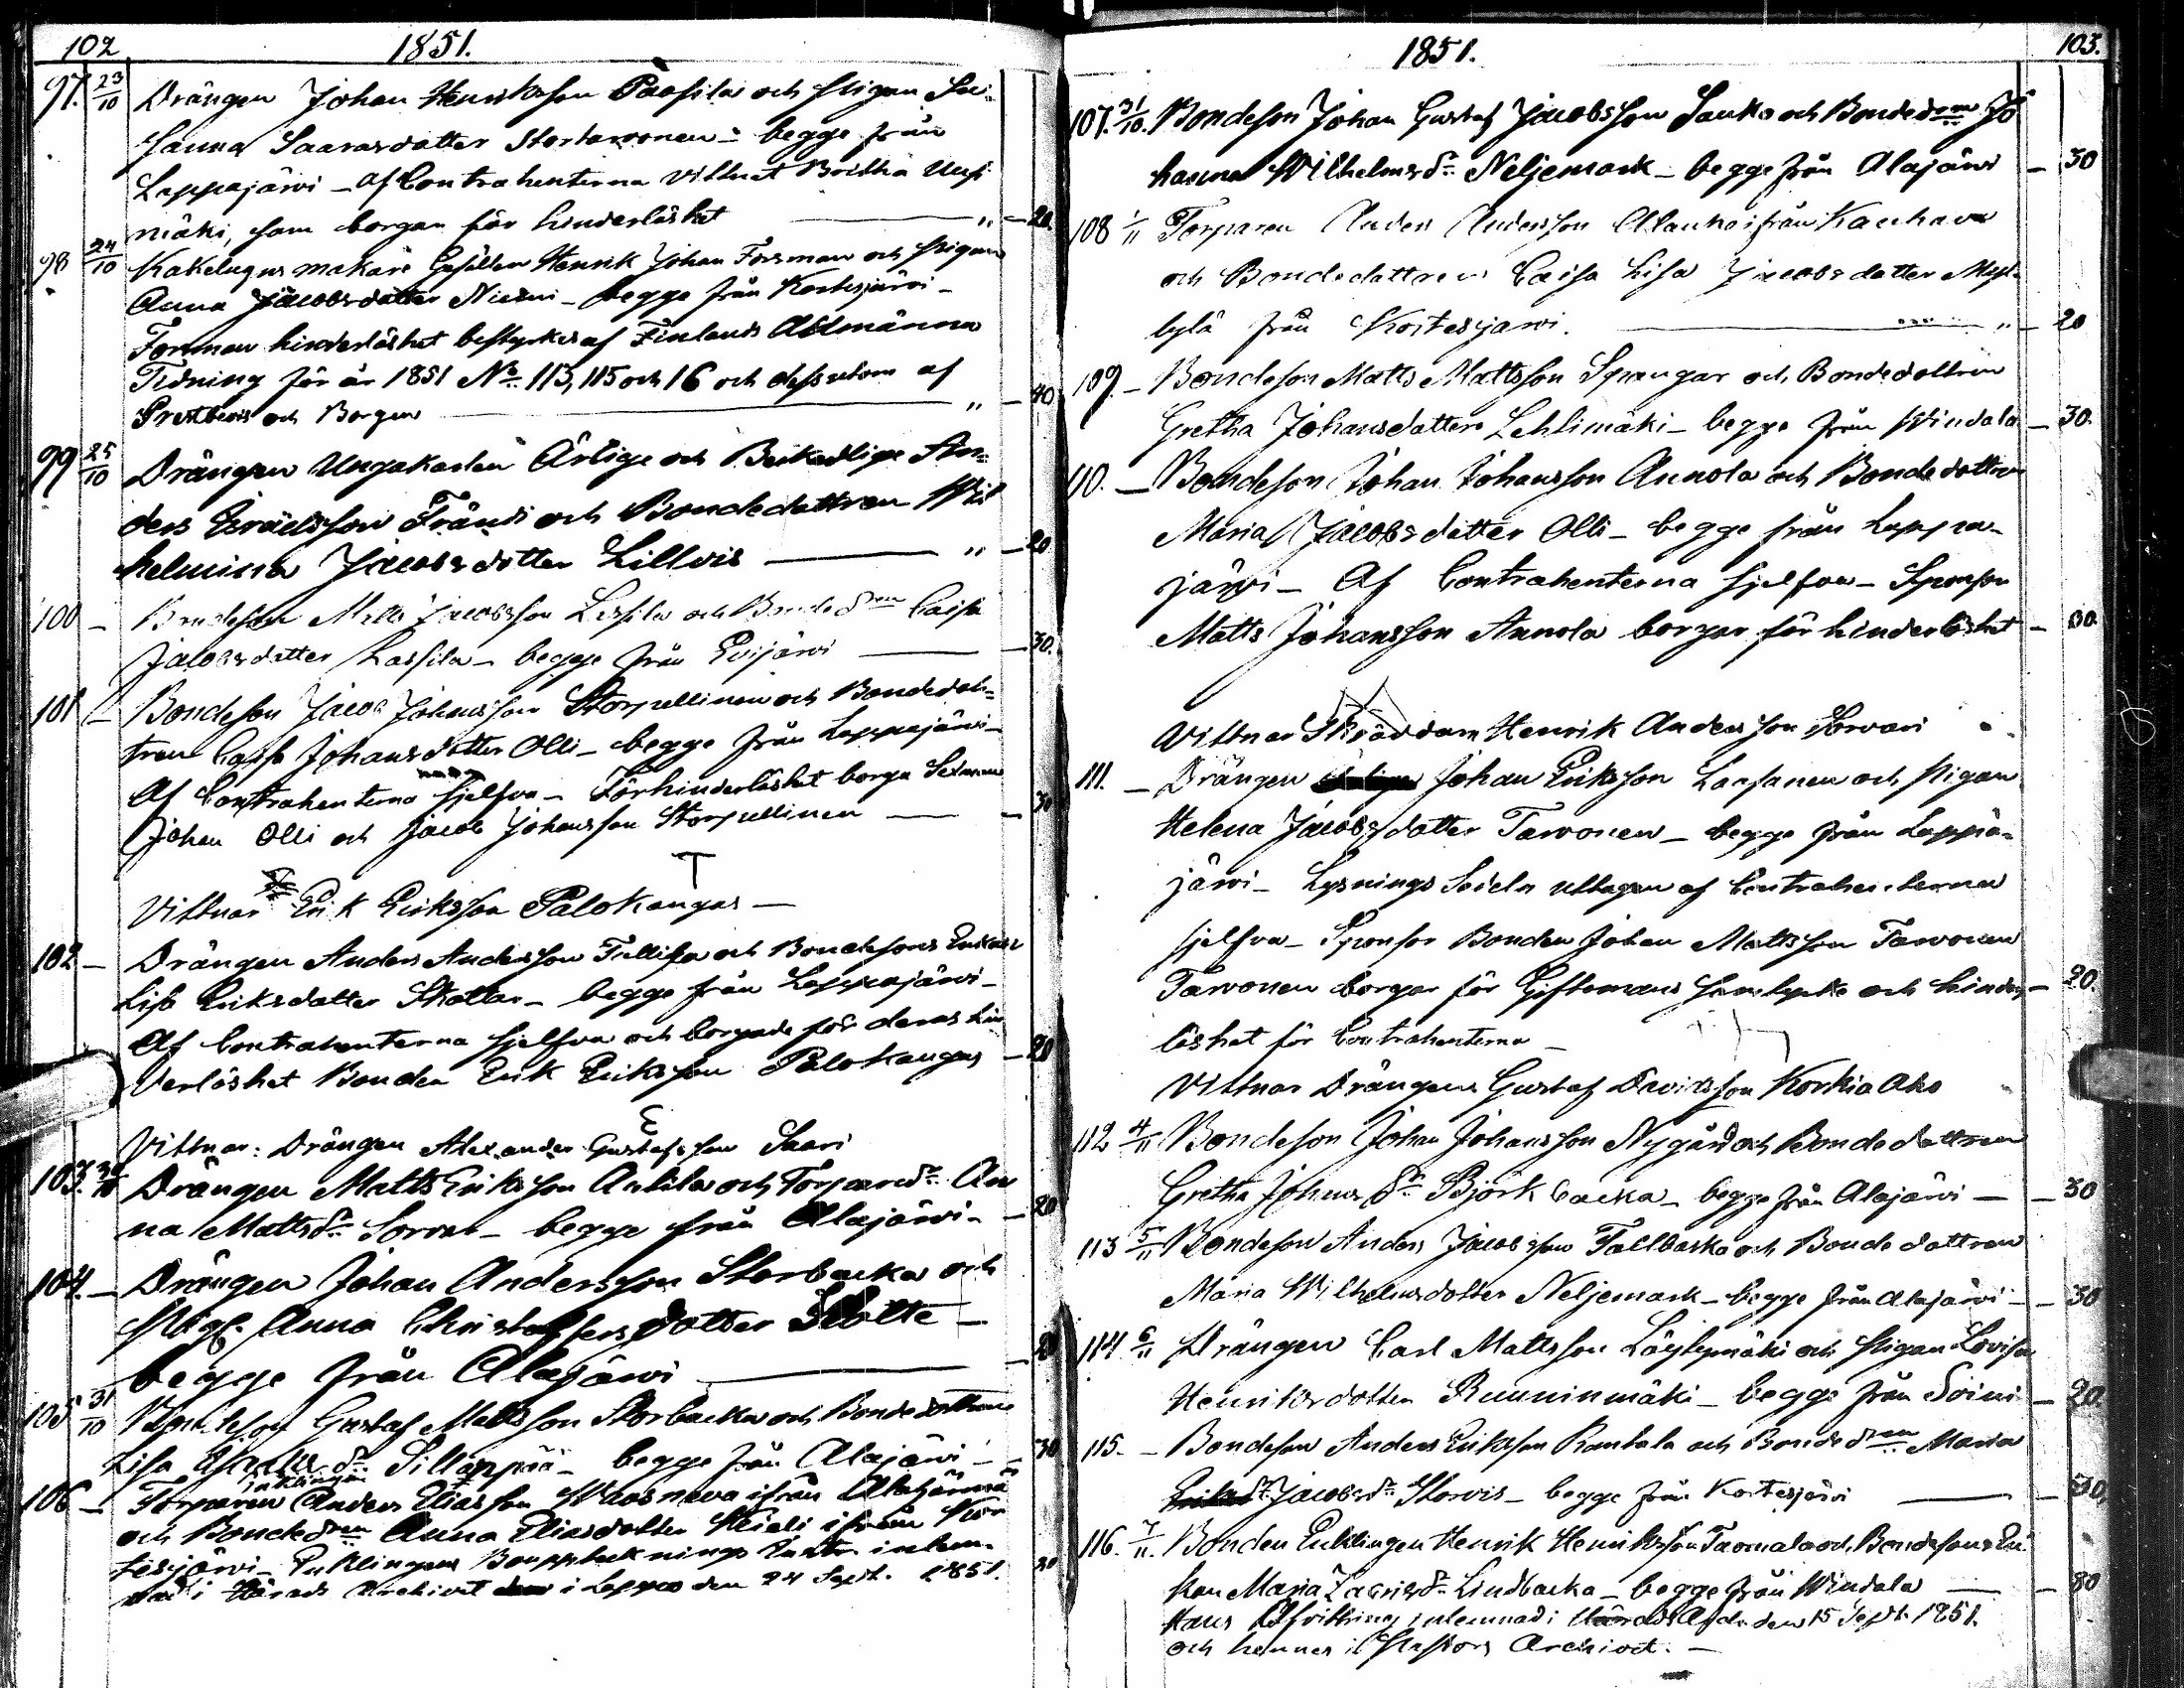 102 1851.
97. 23/10 Drängen Johan Henriksson Paasila och Pigan Su-
sanna Saarasdotter Stortarvonen - begge från
Lappajärvi - af Contrahenterna vittnat Britha Uusi
mäki, som borgar för hinderlöshet " - 20.
98 24/10 Kakelugnsmakare Gesällen Henrik Johan Forsman och Pigan
Anna Jacobsdotter Niemi - begge från Kortesjärvi -
Forsman hinderlöshet bestyrkes af Finlands Allmänna
Tidning för år 1851 No 113, 115 och 16 och dessutom af
Prestbevis och Borgen " - 40
99 25/10 Drängen Ungakarlen Ärlige och Beskedlige An-
ders Esraelsson Fränti och Bondedottren Wil
helmina Jacobsdotter Lillvis " - 20
100 - Bondeson Matts Jacobsson Lassila och Bondedrn Caisa
Jacobsdotter Lassila - begge från Evijärvi - 30.
101 - Bondeson Jacob Johansson Storpellinen och Bondedot-
tren Caisa Johansdotter Olli - begge från Lappajärvi -
Af Contrahenterna sjelfva - För hinderlöshet borga Sexman
Johan Olli och Jacob Johansson Storpellinen - 30
Vittnar Erik Eriksson Palokangas -
102 - Drängen Anders Andersson Tullisa och Bondesons Enkan
Lisa Eriksdotter Skottar - begge från Lappajärvi -
Af Contrahenterna sjelfva och borgade för deras hin
derlöshet Bonden Erik Eriksson Palokangas - 20
Vittnar: Drängen Alexander Gustafsson Saari
103. 30/10 Drängen Matts Eriksson Antila och Torparedr An
na Mattsdr Sorvat - begge från Alajärvi - - 20
104. - Drängen Johan Andersson Storbacka och
Pig. Anna Christoffersdotter Slotte -
begge från Alajärvi - 20
105 31/10 Bondeson Gustaf Mattsson Storbacka och Bondedottren
Lisa dr Sillanpää - begge från Alajärvi - 30
106 - Torparen Enklingen Anders Eliasson Waasneva ifrån Alahärmä
och Bondedrn Anna Eliasdotter ifrån Kor
tesjärvi - Enklingens Bouppteknings inlem-
nad i Härads Archivet i Lappo den 24 Sept. 1851. 30
1851. 103.
107. 31/10. Bondeson Johan Gustaf Jacobsson Sauko och Bondedrn Jo
hanna Wilhelmsdr Neljemark - begge från Alajärvi - 30
108 1/11 Torparen Anders Andersson Alanko ifrån Kauhava
och Bondedottren Caisa Lisa Jacobsdotter Mysl-
lylä från Kortesjärvi. " - 20
109. - Bondeson Matts Mattsson Spangar och Bondedottren
Gretha Johansdotter Lehtimäki - begge från Windala - 30.
110. - Bondeson Johan Johansson Annola och Bondedottren
Maria Jacobsdotter Olli - begge från Lappa-
järvi - Af Contrahenterna sjelfva - Sponson
Matts Johansson Annola borgar för hinderlöshet - 30.
Vittnar Skräddare Henrik Andersson Sorvari
111. - Drängen Johan Eriksson Lassanen och Pigan
Helena Jacobsdotter Tarvonen - begge från Lappa-
järvi - Lysnings Sedeln uttagen af Contrahenterna
sjelfva - Sponsor Bonden Johan Mattsson Tarvonen
Tarvonen borgar för Giftomans samtycke och hinder - 20.
löshet för Contrahenterna -
Vittnar Drängen Gustaf Davidsson Korkia Aho
112 4/11 Bondeson Johan Johansson Nygård och Bondedottren
Gretha Johansdr Björkbacka - begge från Alajärvi - - 30
113 5/11 Bondeson Anders Jacobsson Tallbacka och Bondedottren
Maria Wilhelmsdotter Neljemark - begge från Alajärvi - - 30
114. 6/11 Drängen Carl Mattsson Löylymäki och Pigan Lovisa
Henriksdotter Ruuninmäki - begge från Soini - 20.
115. - Bondeson Anders Eriksson Rantala och Bondedrn Maria
Jacobsdr Storvis - begge från Kortesjärvi - 30.
116. 7/11. Bonden Enklingen Henrik Henriksson Tuomala och Bondesons En
kan Maria Zacrisdr Lindbacka - begge från Windala - 80
Hans Afvittring inlemnad i Härads den 15 Sept. 1851.
och hennes i Pastors Archivet. -